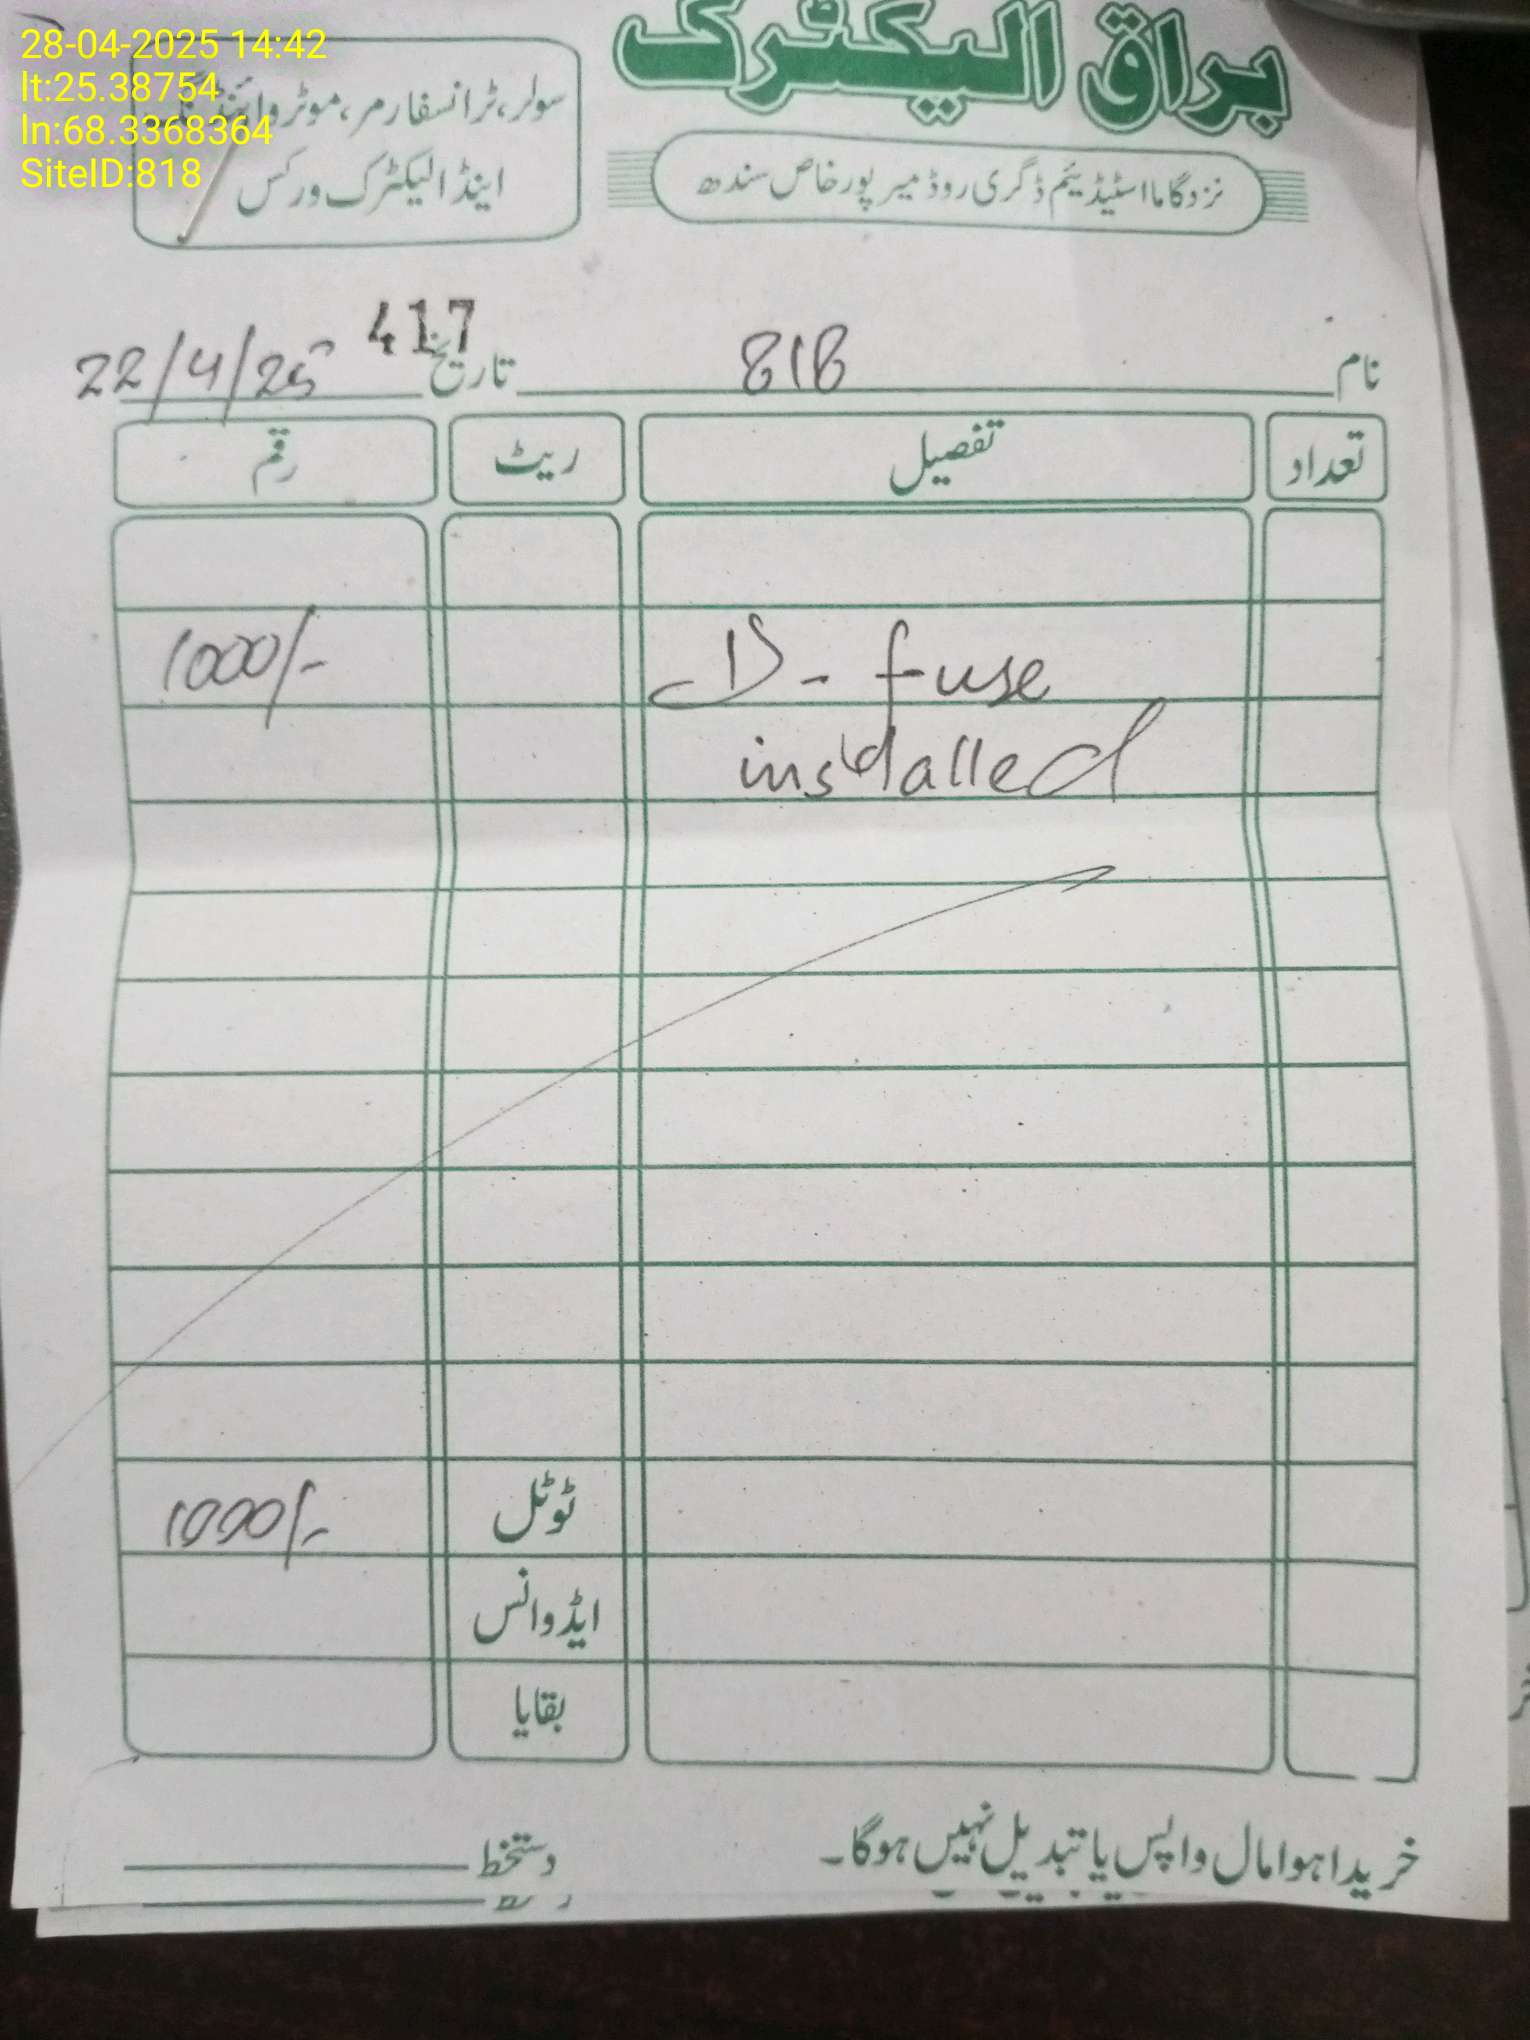 28-04-2025 14:42
lt:25.38754
ln:68.3368364
SiteID:818
براق الیکٹرک
سولر، ٹرانسفارمر، موٹر وائنڈنگ
اینڈ الیکٹرک ورکس
نزد گاما اسٹیڈیئم ڈگری روڈ میرپورخاص سندھ
417
نام 818 تاریخ 22/4/25
تعداد تفصیل ریٹ رقم
D- fuse 1000/-
installed
ٹوٹل 1000/-
ایڈوانس
بقایا
خریدا ہوا مال واپس یا تبدیل نہیں ہوگا۔
دستخط